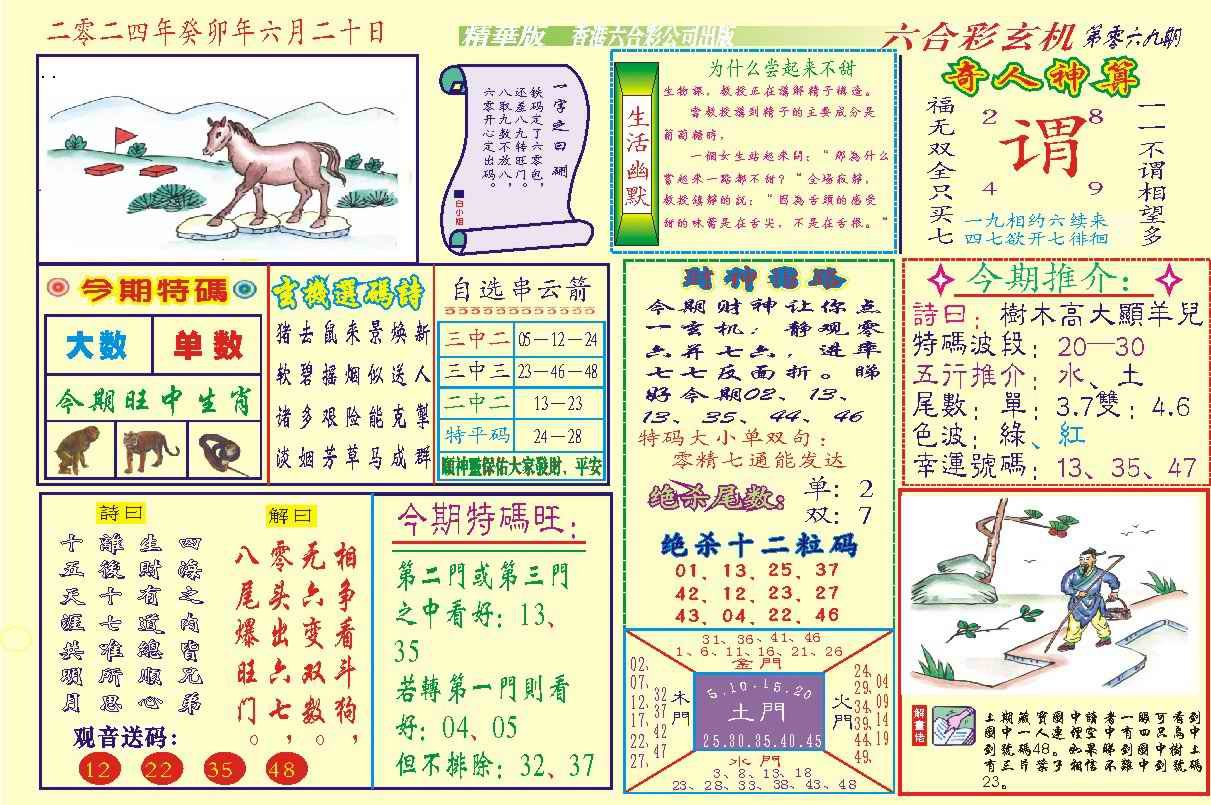 二零二四年癸卯年六月二十日
精華版 香港六合彩公司出版
六合彩玄机 第零六九期
一字之曰:硎
铁码定了六零包,
还差八九转旺门。
八取九数不放八,
六零开心定出码。
■白小姐
生活幽默
为什么尝起来不甜
生物課,教授正在講解精子構造。
當教授講到精子的主要成分是
葡萄糖時,
一個女生站起來問:“那為什么
嘗起來一點都不甜?“全場寂靜,
教授鎮靜的說:“因為舌頭的感受
甜的味蕾是在舌尖,不是在舌根。“
奇人神算
福无双全只买七
2 8
谓
4 9
一一不谓相望多
一九相约六续来
四七欲开七徘徊
今期特碼
大数 单数
今期旺中生肖
玄機選碼詩
猪去鼠来景焕新
软碧摇烟似送人
诸多艰险能克掣
淡姻芳草马成群
自选串云箭
三中二 05—12—24
三中三 23—46—48
二中二 13—23
特平码 24—28
願神靈保佑大家發財、平安
今期财神让你点
一玄机,静观零
六并七六,进率
七七反面折。睇
好今期02、13、
13、35、44、46
特码大小单双句:
零精七通能发达
绝杀尾数: 单:2
双:7
绝杀十二粒码
01、13、25、37
42、12、23、27
43、04、22、46
今期推介:
詩曰:樹木高大顯羊兒
特碼波段:20—30
五行推介:水、土
尾數:單:3.7雙:4.6
色波:綠、紅
幸運號碼:13、35、47
詩曰
四海之内皆兄弟
生財有道總順心
離後十七唯所思
十五天涯共明月
解曰
相争看斗狗,
无六变双数,
零头出六七,
八尾爆旺门。
观音送码:
12 22 35 48
今期特碼旺:
第二門或第三門
之中看好:13、
35
若轉第一門則看
好:04、05
但不排除:32、37
31、36、41、46
1、6、11、16、21、26
金門
02、07、12、17、22、27、
32、37、42、47
木門
5.10.15.20
土門
25.30.35.40.45
火門
24、29、34、39、44、49、
04、09、14、19
水門
3、8、13、18
23、28、33、38、43、48
解畫佬
上期藏寶圖中讀者一睇可看到
圖中一人連徑空中有四只鳥中
到號碼48。如果睇到圖中樹上
有三片葉子相信不難中到號碼
23。